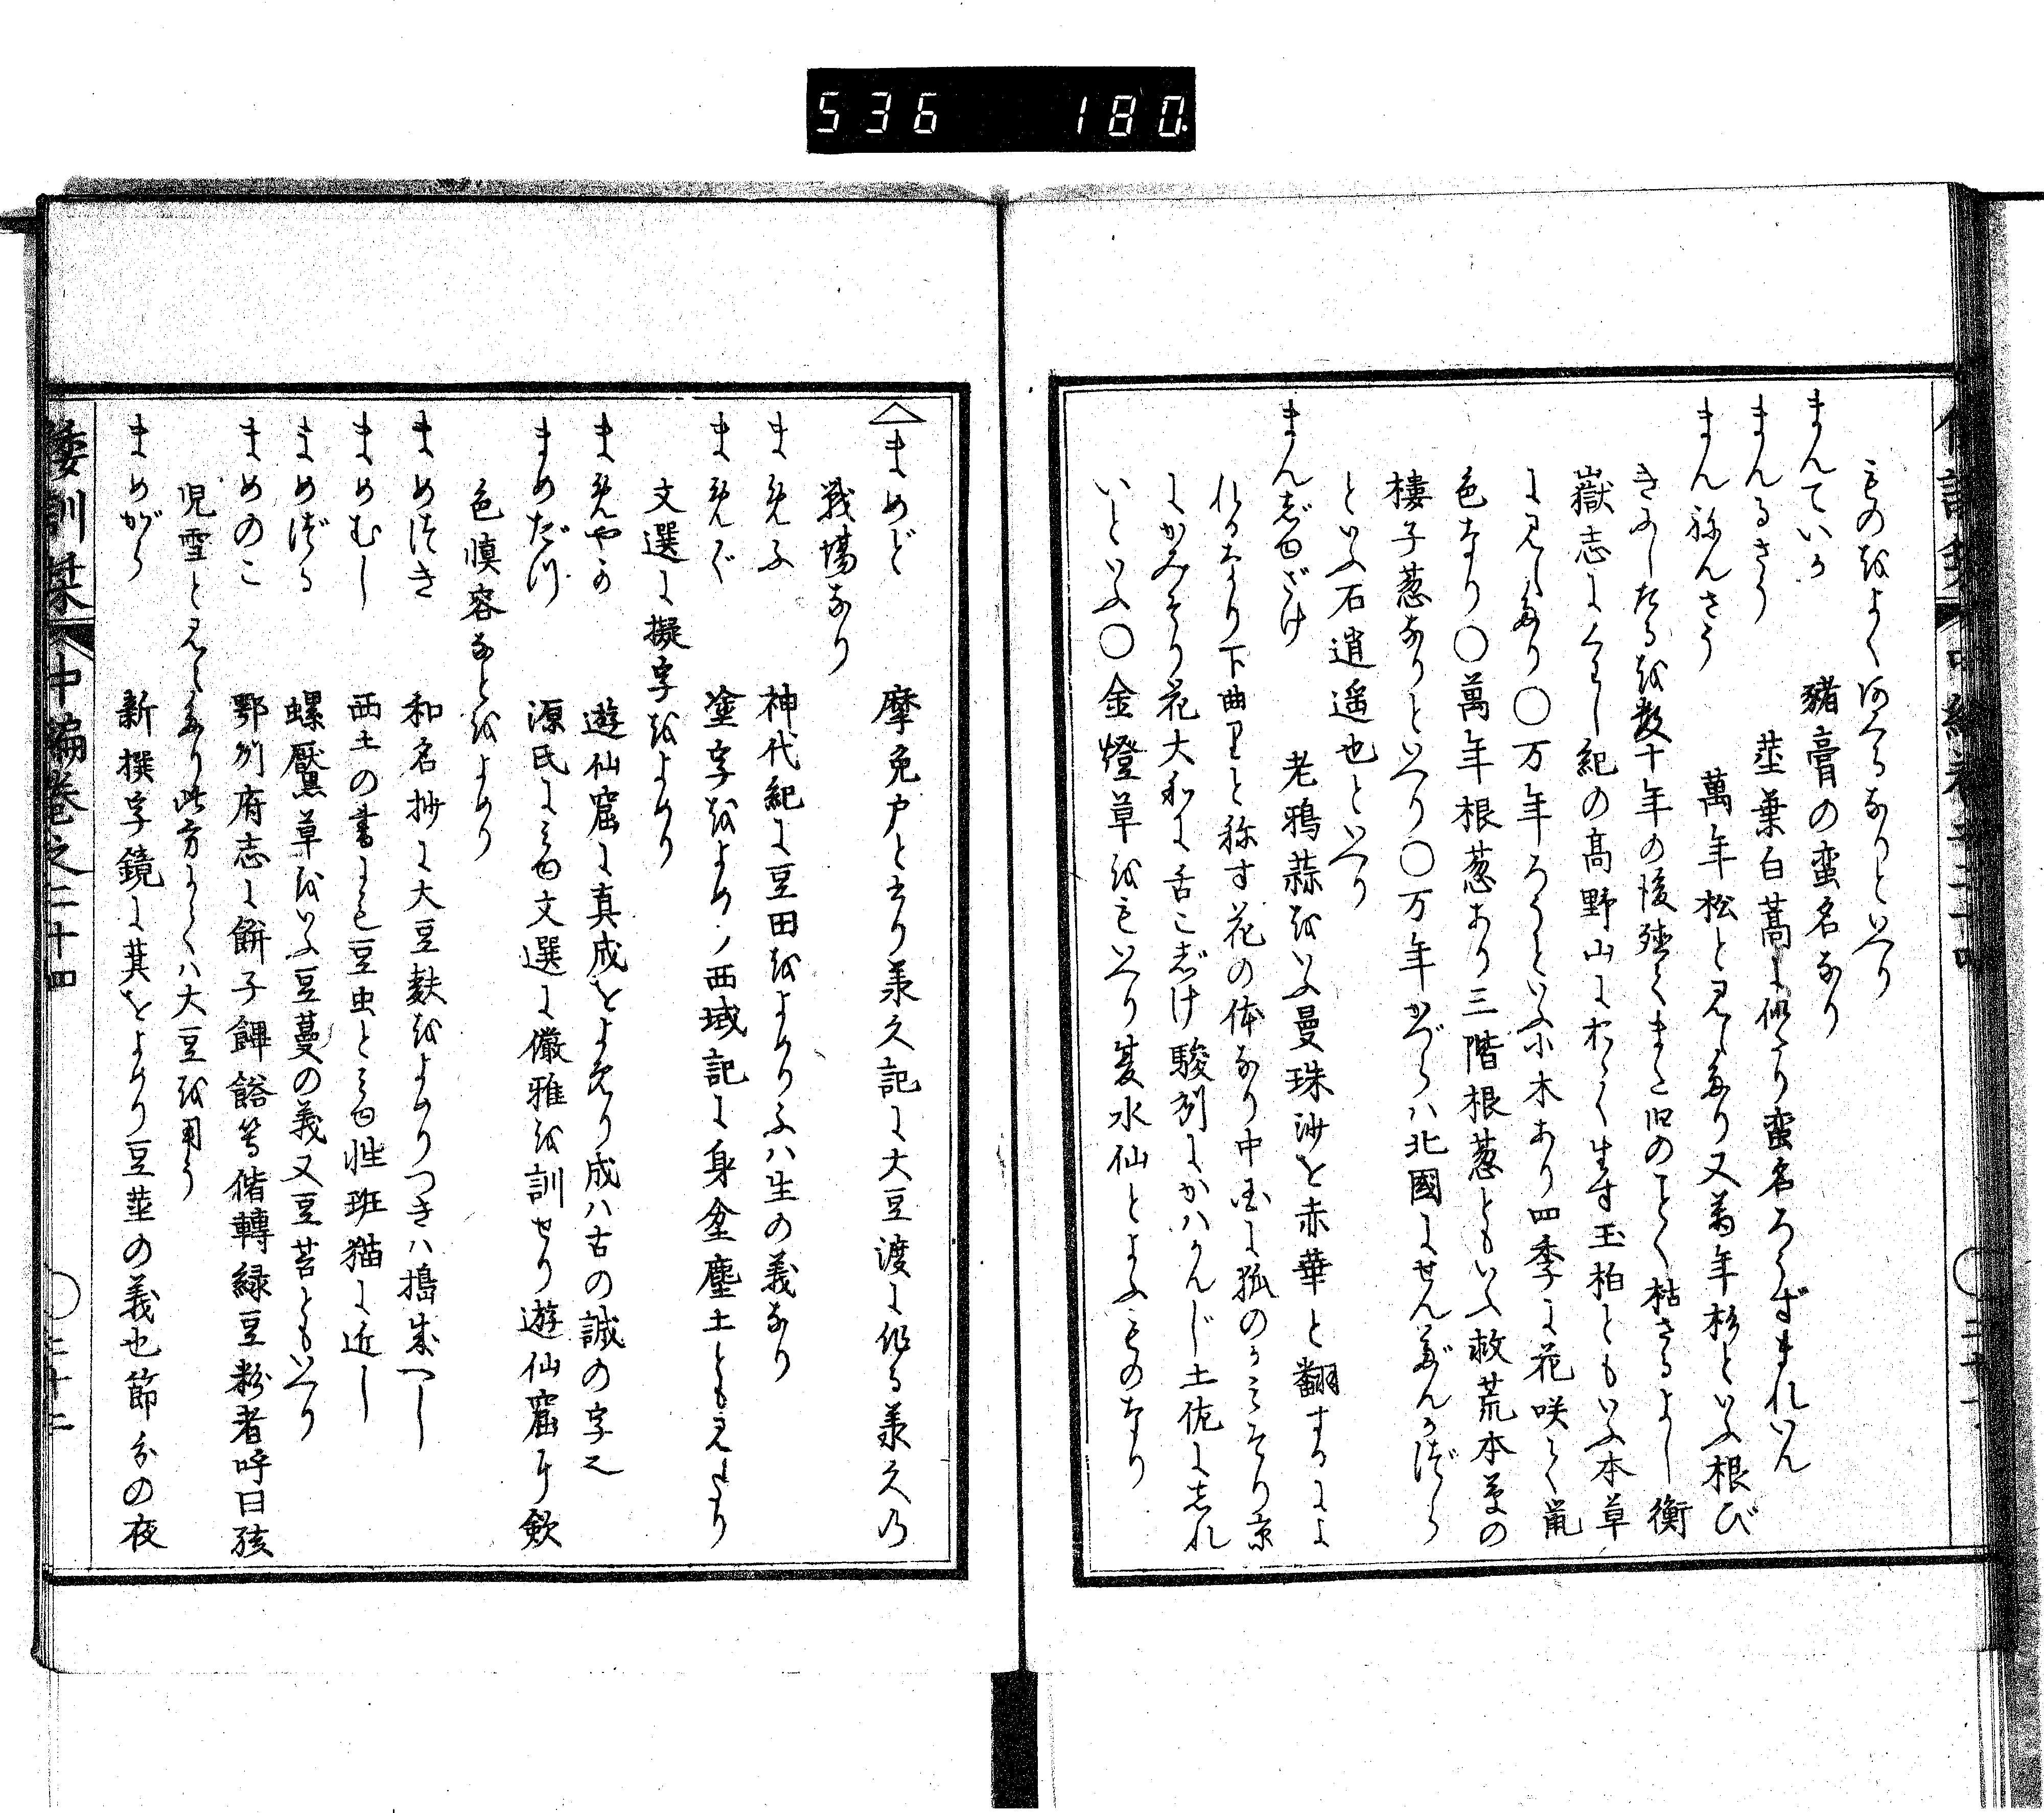 536 180
ものをよくゆへるなりといへり
まんていか 豬膏の蛮名なり
まんるさう 莖葉白蒿に似たり蛮名ろうずまれいん
まんねんさう 萬年松と見えたり又萬年杉といふ根び
きにしたるを数十年の後 くまた旧のことく枯さるよし衡
嶽志にくはし紀の高野山におほく生す玉柏ともいふ本草
に見えたり○万年ろうといふ小木あり四季に花咲て鼠
色なり○萬年根葱あり三階根葱ともいふ救荒本草の
樓子葱なりといへり○万年かづらハ北國にせんぶんかづら
といふ石逍遥也といへり
まんじゆざけ 老鴉蒜をいふ曼珠沙を赤華と翻するによ
れるなり下曲里と称す花の体なり中国に狐のかみそり京
にかみそり花大和に舌こじけ駿州にかハかんじ土佐にしれ
いといふ○金燈草をもいへり夏水仙とよふものなり
倭訓栞 中編巻之二十四 ○二十二
△まめど 摩免戸とかり羕久記に大豆渡に作る羕久乃
戦場なり
まめふ 神代紀に豆田をよめりふハ生の義なり
まめぐ 塗字をよめり西域記に身坌塵土ともみえたり
文選に擬字をよめり
まめやか 遊仙窟に真成をよめり成ハ古の誠の字也
まめだつ 源氏にみゆ文選に儼雅を訓せり遊仙窟に斂
色慎容なとをよめり
まめつき 和名抄に大豆麩をよめりつきハ搗成へし
まめむし 西土の書にも豆虫とみゆ性班猫に近し
まめづる 螺厴草をいふ豆蔓の義又豆苔ともいへり
まめのこ 鄂州府志に餅子餫餎等偕轉緑豆粉者呼曰孩
児雪と見えたり此方にてハ大豆を用う
まめがら 新撰字鏡に萁をよめり豆莖の義也節分の夜